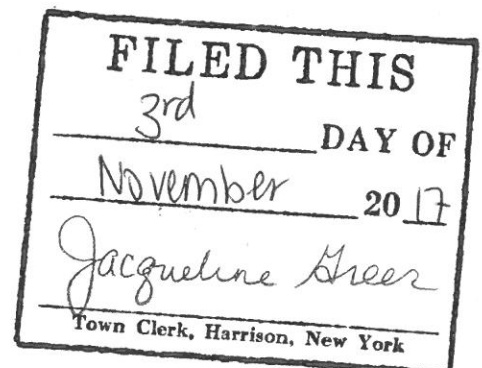 FILED THIS
3rd
DAY OF
November 2017
Jacqueline Greer
Town Clerk, Harrison, New York